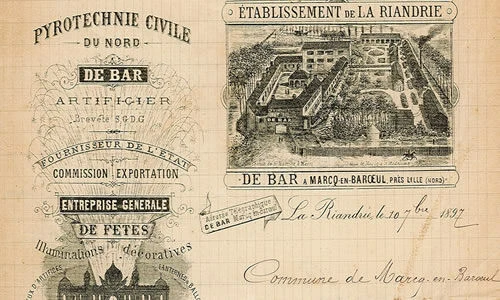 PYROTECHNIE CIVILE
DU NORD
DE BAR
ARTIFICIER
Breveté S.G.D.G
FOURNISSEUR DE L'ETAT
COMMISSION EXPORTATION
ENTREPRISE GENERALE
DE FETES
Illuminations décoratives
LANTERNES, BALL
ÉTABLISSEMENT DE LA RIANDRIE
DE BAR A MARCQ-EN-BARŒUL, PRÈS LILLE (NORD)
Adresse Télégraphique
DE BAR Marcq-en-Barœul
La Riandrie, le 10 7bre 1897
Commune de Marcq-en-Baroeul